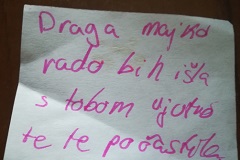 Draga majko
rado bih išla
s tobom ujutro
te te počastila